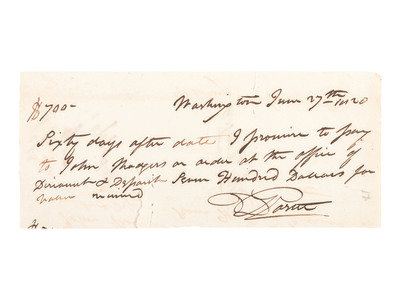 $700-
Washington June 27th 1820
Sixty days after date I promise to pay
to John Rodgers or order at the office of
Discount & Deposit Seven Hundred Dollars for
value received
D Porter